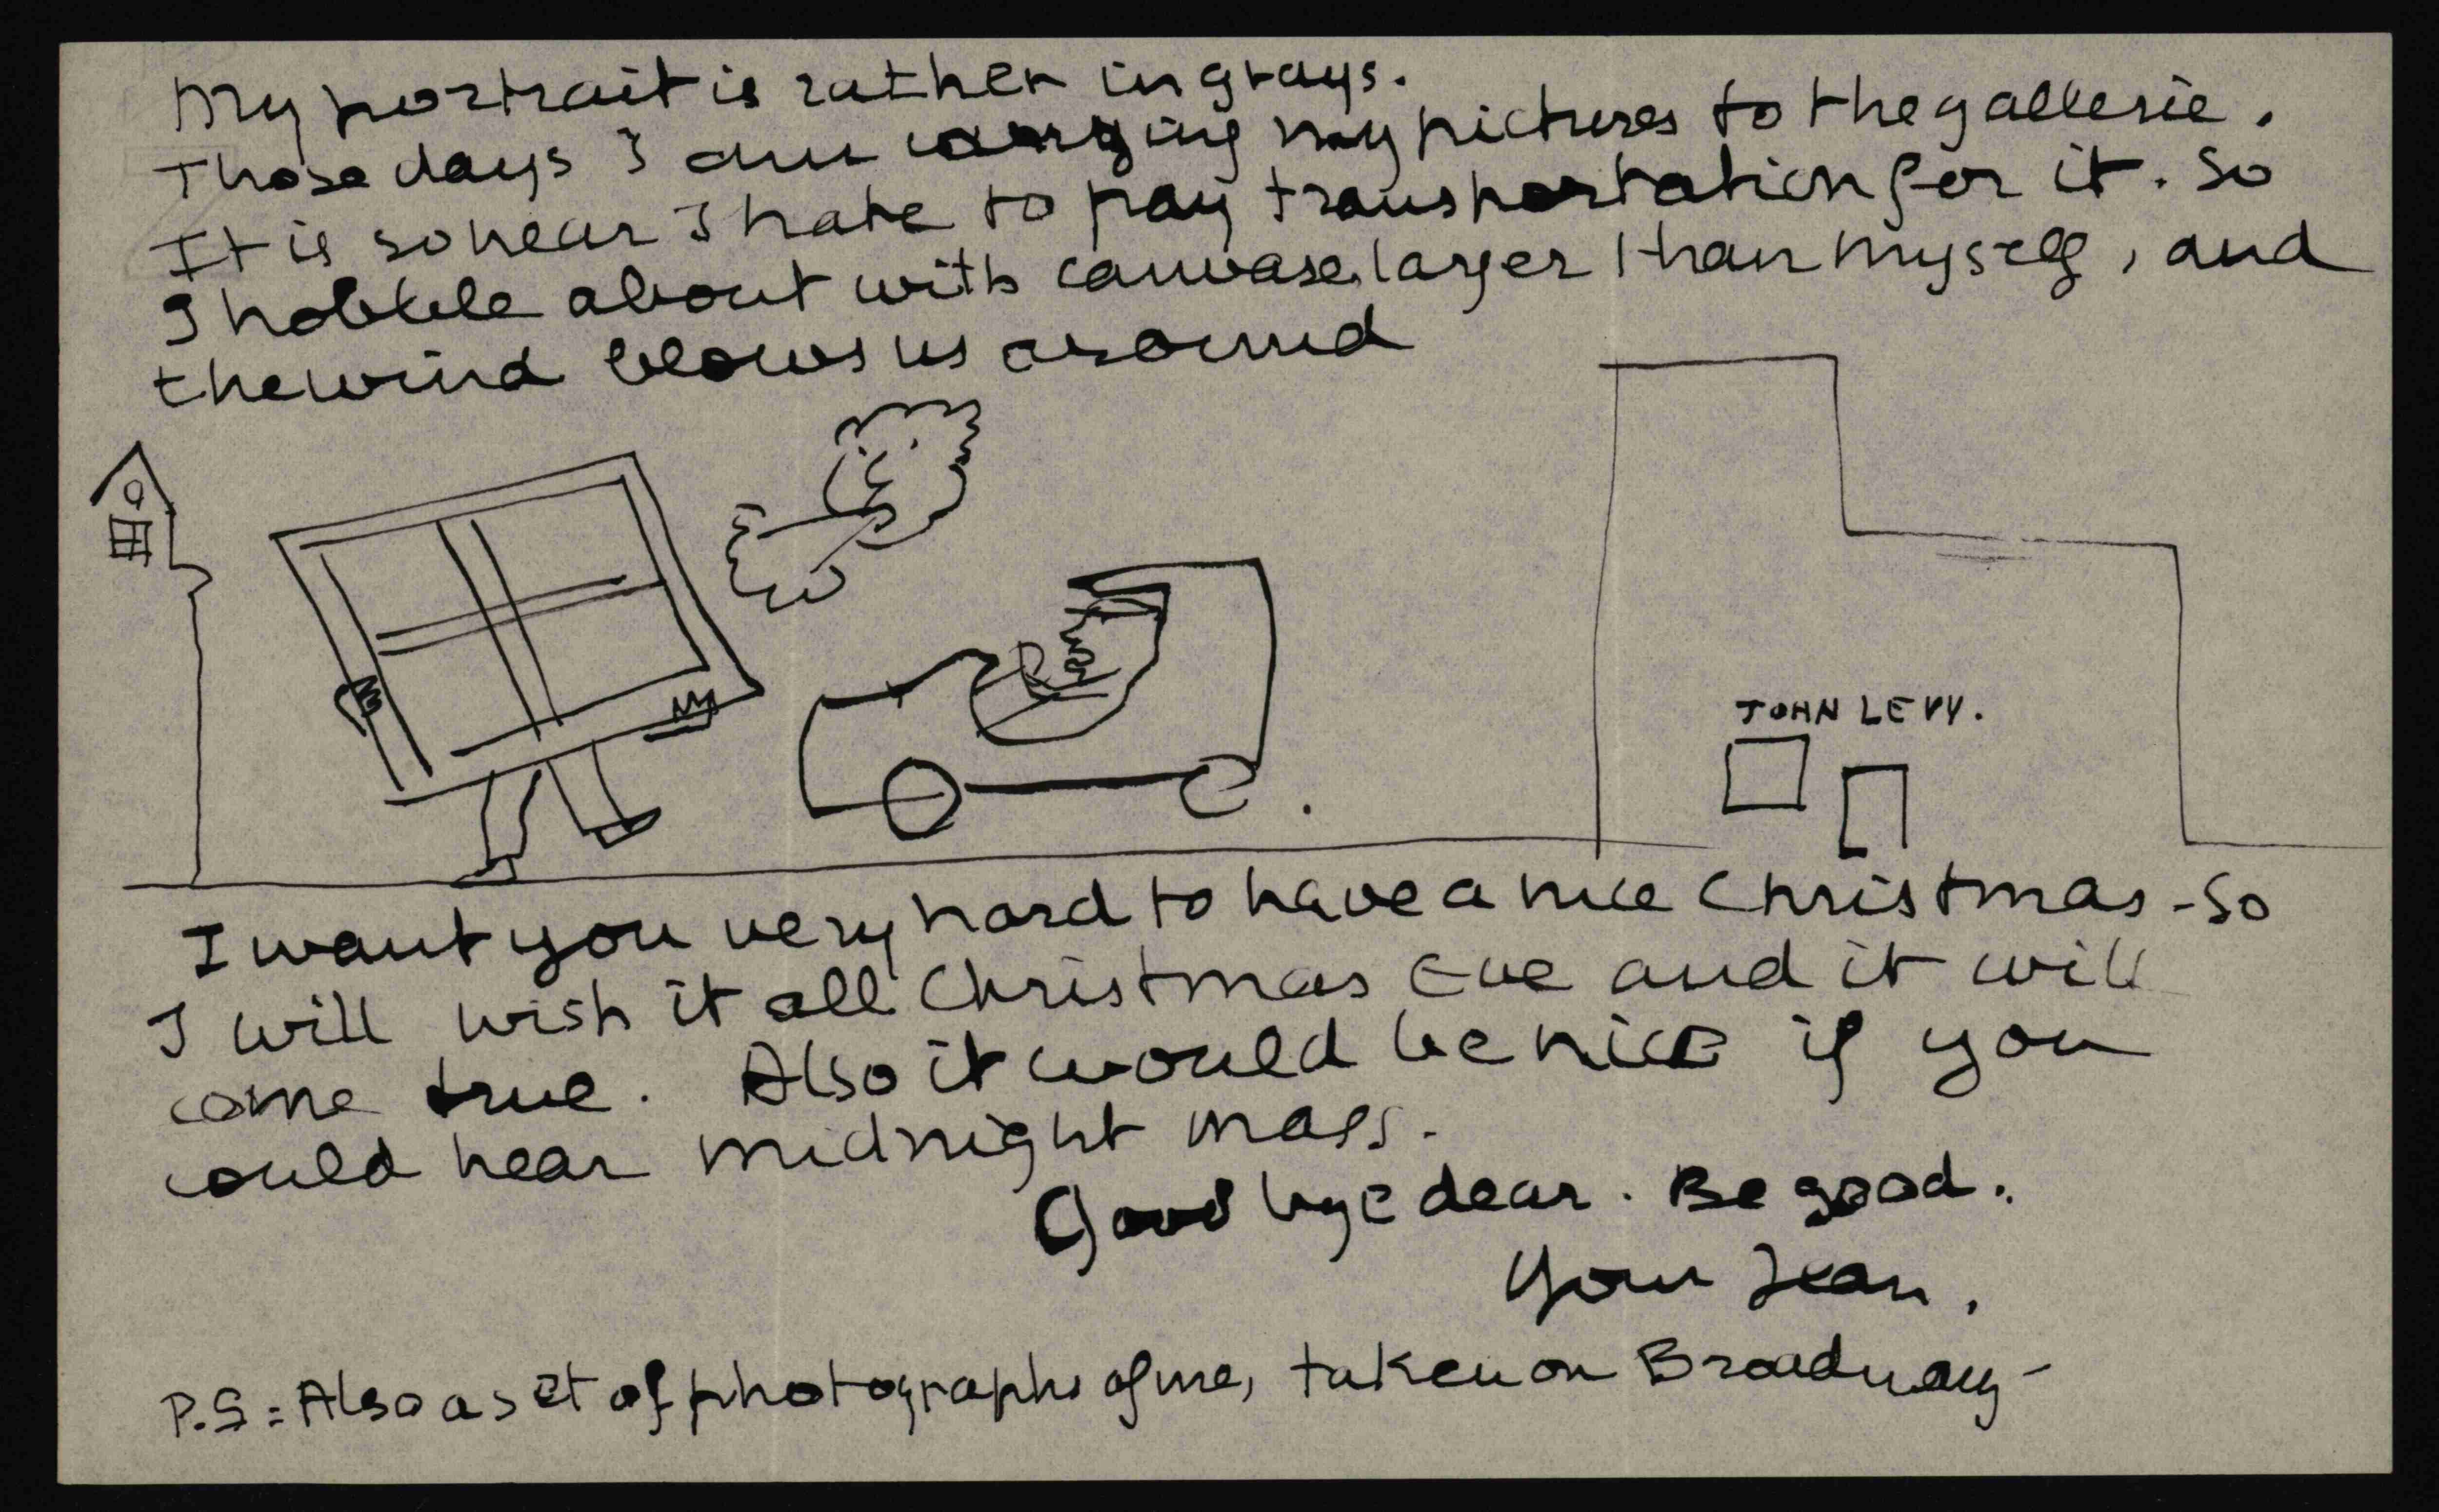 My portrait is rather in grays.
Those days I am carrying my pictures to the gallerie.
It is so near I hate to pay transportation for it. So
I hobble about with canvases larger than myself, and
the wind blows us around
JOHN LEVY.
I want you very hard to have a nice Christmas - So
I will wish it all Christmas Eve and it will
come true. Also it would be nice if you
could hear midnight mass.
Good bye dear. Be good.
Your Jean.
P.S: Also a set of photographs of me, taken on Broadway -